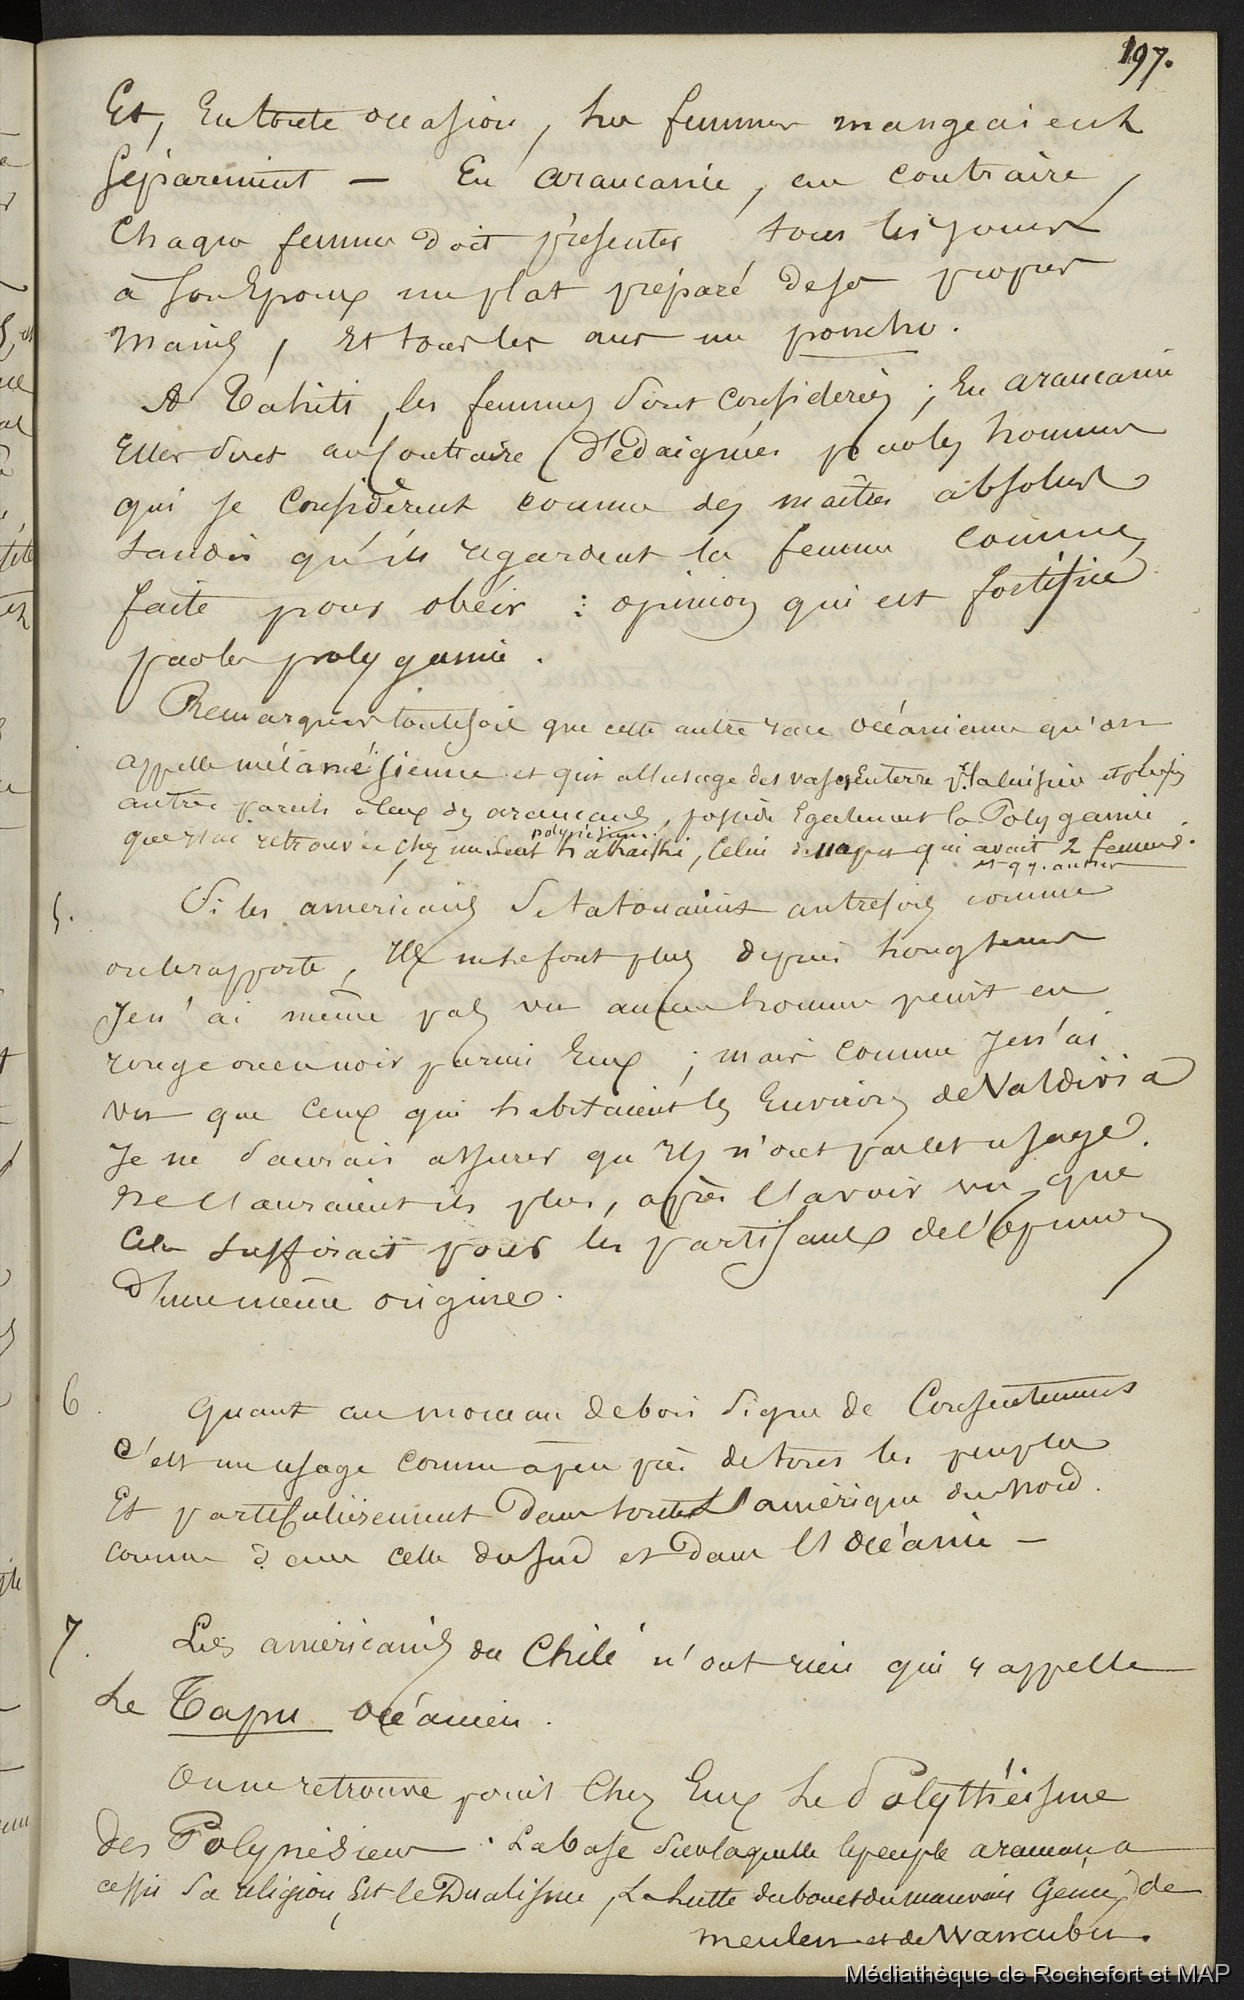 197.
Et, En toute occasion, les femmes mangeaient
séparément — En araucanie, au contraire,
Chaque femme doit présenter tous les jours
à son Epoux un plat préparé de ses propres
mains, Et tous les ans un poncho.
A Tahiti, les femmes sont considérées ; En araucanie
Elles sont au Contraire Dédaignées par les hommes
qui se Considèrent comme des maîtres absolus
tandis qu'ils regardent la femme comme
faite pour obéir : opinion qui est fortifiée
par la polygamie.
Remarquer toutefois que cette autre race océanienne qu'on
appelle mélanésienne et qui a l'usage des vases En terre
autres pareils à Ceux des araucans, possède Egalement la Polygamie
que j'ai retrouvée chez un seul
polynésien.
Celui qui avait 2 femmes.
5.
Si les américains Se tatouaient autrefois comme
on le rapporte, Ils ne le font plus depuis longtems
Je n'ai même pas vu aucun homme peint en
rouge ou en noir parmi Eux ; mais comme Je n'ai
vu que Ceux qui habitaient les Environs de Valdivia
Je ne saurais assurer qu'Ils n'ont pas cet usage.
Ne l'auraient ils plus, après l'avoir eu, que
Cela suffirait pour les partisans de l'opinion
d'une même origine.
6.
Quant au morceau de bois signe de Consentement
C'est un usage commun à peu près de tous les peuples
Et particulièrement Dans toute l'amérique du nord.
comme dans celle du sud et Dans l'océanie —
7.
Les américains du Chili n'ont rien qui rappelle
Le Tapu océanien.
On ne retrouve point Chez Eux Le Polythéisme
des Polynésiens : La base sur laquelle le peuple araucan a
assis sa religion, Est le Dualisme, La lutte du bon et du mauvais Génie, de
meulen et de Wancubu.
Médiathèque de Rochefort et MAP